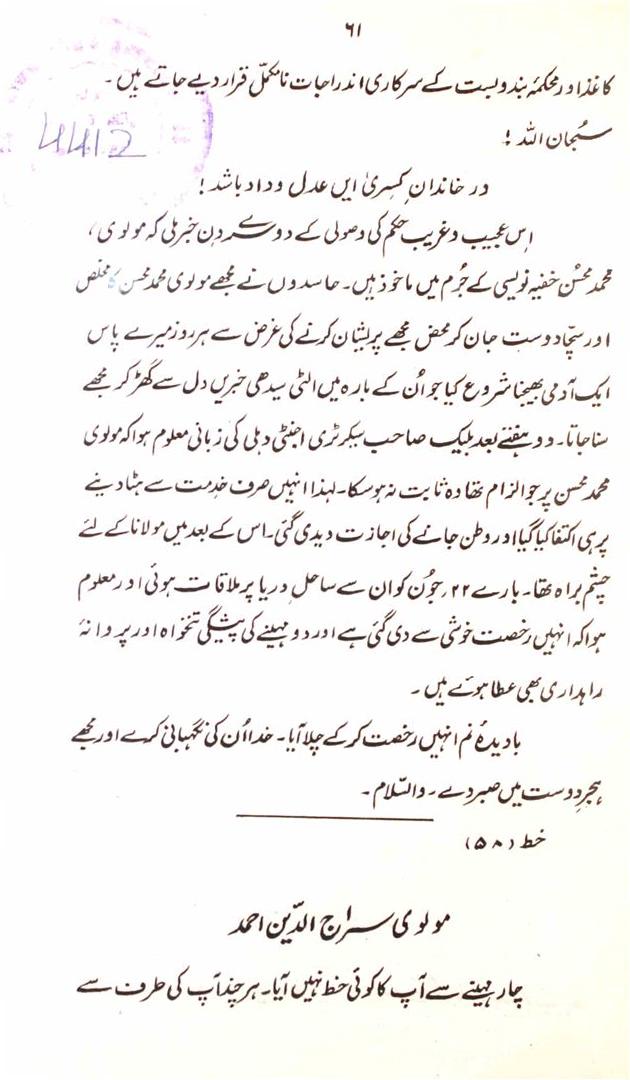 ۶۱
کاغذ اور محکمۂ بندوبست کے سرکاری اندراجات نامکمّل قرار دیے جاتے ہیں۔
سُبحان اللہ!
4412
در خاندانِ کِسریٰ ایں عدل و داد باشد!
اِس عجیب و غریب حکم کی وصولی کے دوسرے دن خبر ملی کہ مولوی،
محمد محسن خفیہ نویسی کے جُرم میں ماخوذ ہیں۔ حاسدوں نے مجھے مولوی محمد محسن کا مخلص
اور سچّا دوست جان کر محض مجھے پریشان کرنے کی غرض سے ہر روز میرے پاس
ایک آدمی بھیجنا شروع کیا جو اُن کے بارہ میں الٹی سیدھی خبریں دل سے گھڑ کر مجھے
سنا جاتا۔ دو ہفتے بعد بلیک صاحب سیکرٹری اجنٹی دہلی کی زبانی معلوم ہوا کہ مولوی
محمد محسن پر جو الزام تھا وہ ثابت نہ ہو سکا۔ لہٰذا انہیں صرف خدمت سے ہٹا دینے
پر ہی اکتفا کیا گیا اور وطن جانے کی اجازت دیدی گئی۔ اس کے بعد میں مولانا کے لئے
چشم براہ تھا۔ بارے ۲۲؍ جُون کو ان سے ساحلِ دریا پر ملاقات ہوئی اور معلوم
ہوا کہ انہیں رخصت خوشی سے دی گئی ہے اور دو مہینے کی پیشگی تنخواہ اور پروانۂ
راہداری بھی عطا ہوئے ہیں۔
بادیدۂ نم انہیں رخصت کر کے چلا آیا۔ خدا اُن کی نگہبانی کرے اور مجھے
ہجرِ دوست میں صبر دے۔ والسّلام۔
خط (۵۸)
مولوی سراج الدّین احمد
چار مہینے سے آپ کا کوئی خط نہیں آیا۔ ہر چند آپ کی طرف سے